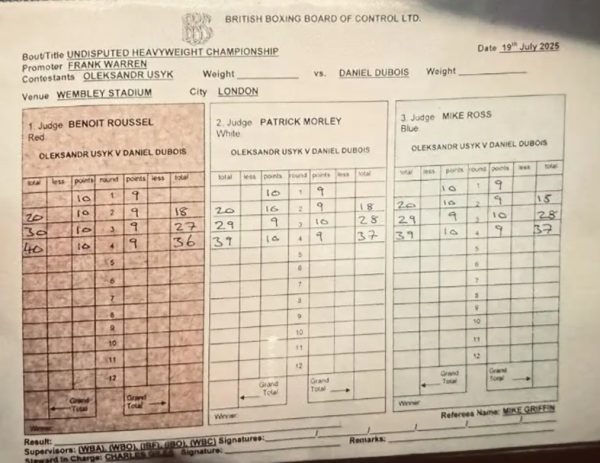 BRITISH BOXING BOARD OF CONTROL LTD.
Bout/Title UNDISPUTED HEAVYWEIGHT CHAMPIONSHIP
Date 19th July 2025
Promoter FRANK WARREN
Contestants OLEKSANDR USYK Weight vs. DANIEL DUBOIS Weight
Venue WEMBLEY STADIUM City LONDON
1. Judge BENOIT ROUSSEL
Red
OLEKSANDR USYK V DANIEL DUBOIS
total less points round points less total
10 1 9
20 10 2 9 18
30 10 3 9 27
40 10 4 9 36
5
6
7
8
9
10
11
12
Grand Total Grand Total
Winner
2. Judge PATRICK MORLEY
White
OLEKSANDR USYK V DANIEL DUBOIS
total less points round points less total
10 1 9
20 10 2 9 18
29 9 3 10 28
39 10 4 9 37
5
6
7
8
9
10
11
12
Grand Total Grand Total
Winner
3. Judge MIKE ROSS
Blue
OLEKSANDR USYK V DANIEL DUBOIS
total less points round points less total
10 1 9
20 10 2 9 18
29 9 3 10 28
39 10 4 9 37
5
6
7
8
9
10
11
12
Grand Total Grand Total
Winner
Referees Name: MIKE GRIFFIN
Result:
Supervisors: (WBA), (WBO), (IBF), (IBO), (WBC) Signatures: Remarks:
Steward in Charge: CHARLES Signature: